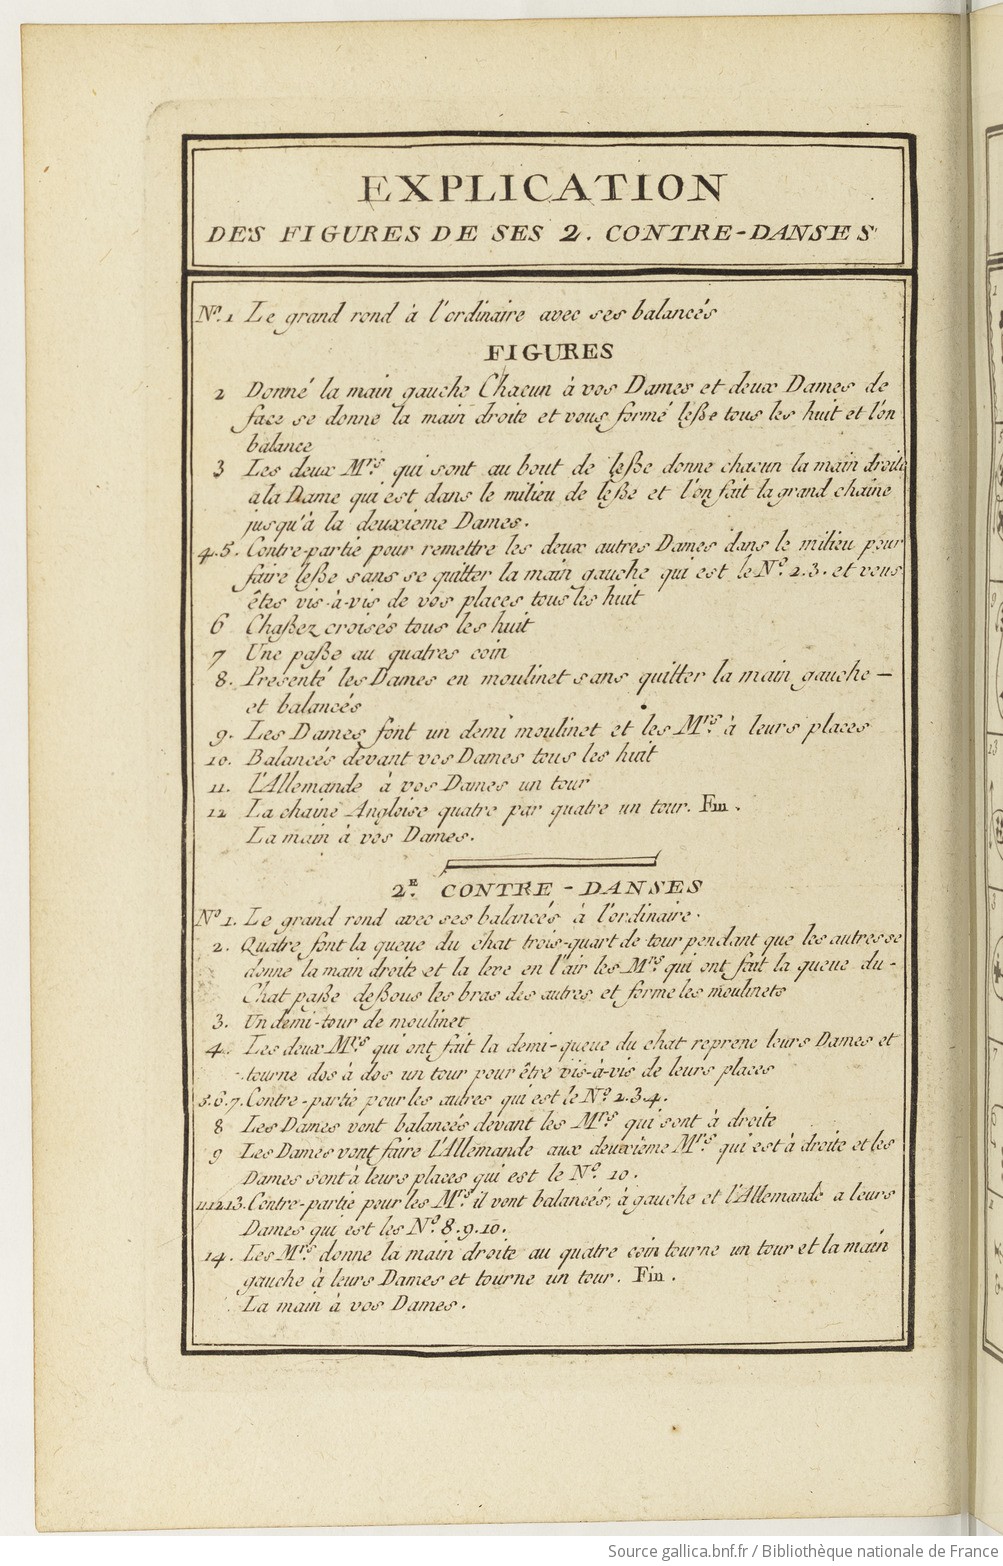 EXPLICATION
DES FIGURES DE SES 2. CONTRE-DANSES
Nº. 1 Le grand rond à l'ordinaire avec ses balancés
FIGURES
2 Donné la main gauche Chacun à vos Dames et deux Dames de
face se donne la main droite et vous formé leße tous les huit et l'on
balance
3 Les deux Mrs. qui sont au bout de leße donne chacun la main droite
a la Dame qui est dans le milieu de leße et l'on fait la grand chaine
jusqu'à la deuxieme Dames.
4.5. Contre-partie pour remettre les deux autres Dames dans le milieu pour
faire leße sans se quitter la main gauche qui est le Nº. 2.3. et vous
êtes vis-à-vis de vos places tous les huit
6 Chaßez croisés tous les huit
7 Une paße au quatres coin
8. Presenté les Dames en moulinet sans quitter la main gauche —
et balancés
9. Les Dames font un demi moulinet et les Mrs. à leurs places
10. Balancés devant vos Dames tous les huit
11. l'Allemande à vos Dames un tour
12 La chaine Angloise quatre par quatre un tour. Fin.
La main à vos Dames.
2E. CONTRE-DANSES
Nº 1. Le grand rond avec ses balancés à l'ordinaire.
2. Quatre font la queue du chat trois-quart de tour pendant que les autres se
donne la main droite et la leve en l'air les Mrs. qui ont fait la queue du-
Chat paße deßous les bras des autres et forme les moulinets
3. Un demi-tour de moulinet
4. Les deux Mrs. qui ont fait la demi-queue du chat reprene leurs Dames et
tourne dos à dos un tour pour être vis-à-vis de leurs places
5.6.7. Contre-partie pour les autres qui est le Nº. 2.3.4.
8 Les Dames vont balancés devant les Mrs. qui sont à droite
9 Les Dames vont faire l'Allemande aux deuxième Mrs. qui est à droite et les
Dames sont à leurs places qui est le Nº. 10.
11.12.13. Contre-partie pour les Mrs. il vont balancés, à gauche et l'Allemande a leurs
Dames qui est les Nº. 8.9.10.
14. Les Mrs. donne la main droite au quatre coin tourne un tour et la main
gauche à leurs Dames et tourne un tour. Fin.
La main à vos Dames.
Source gallica.bnf.fr / Bibliothèque nationale de France